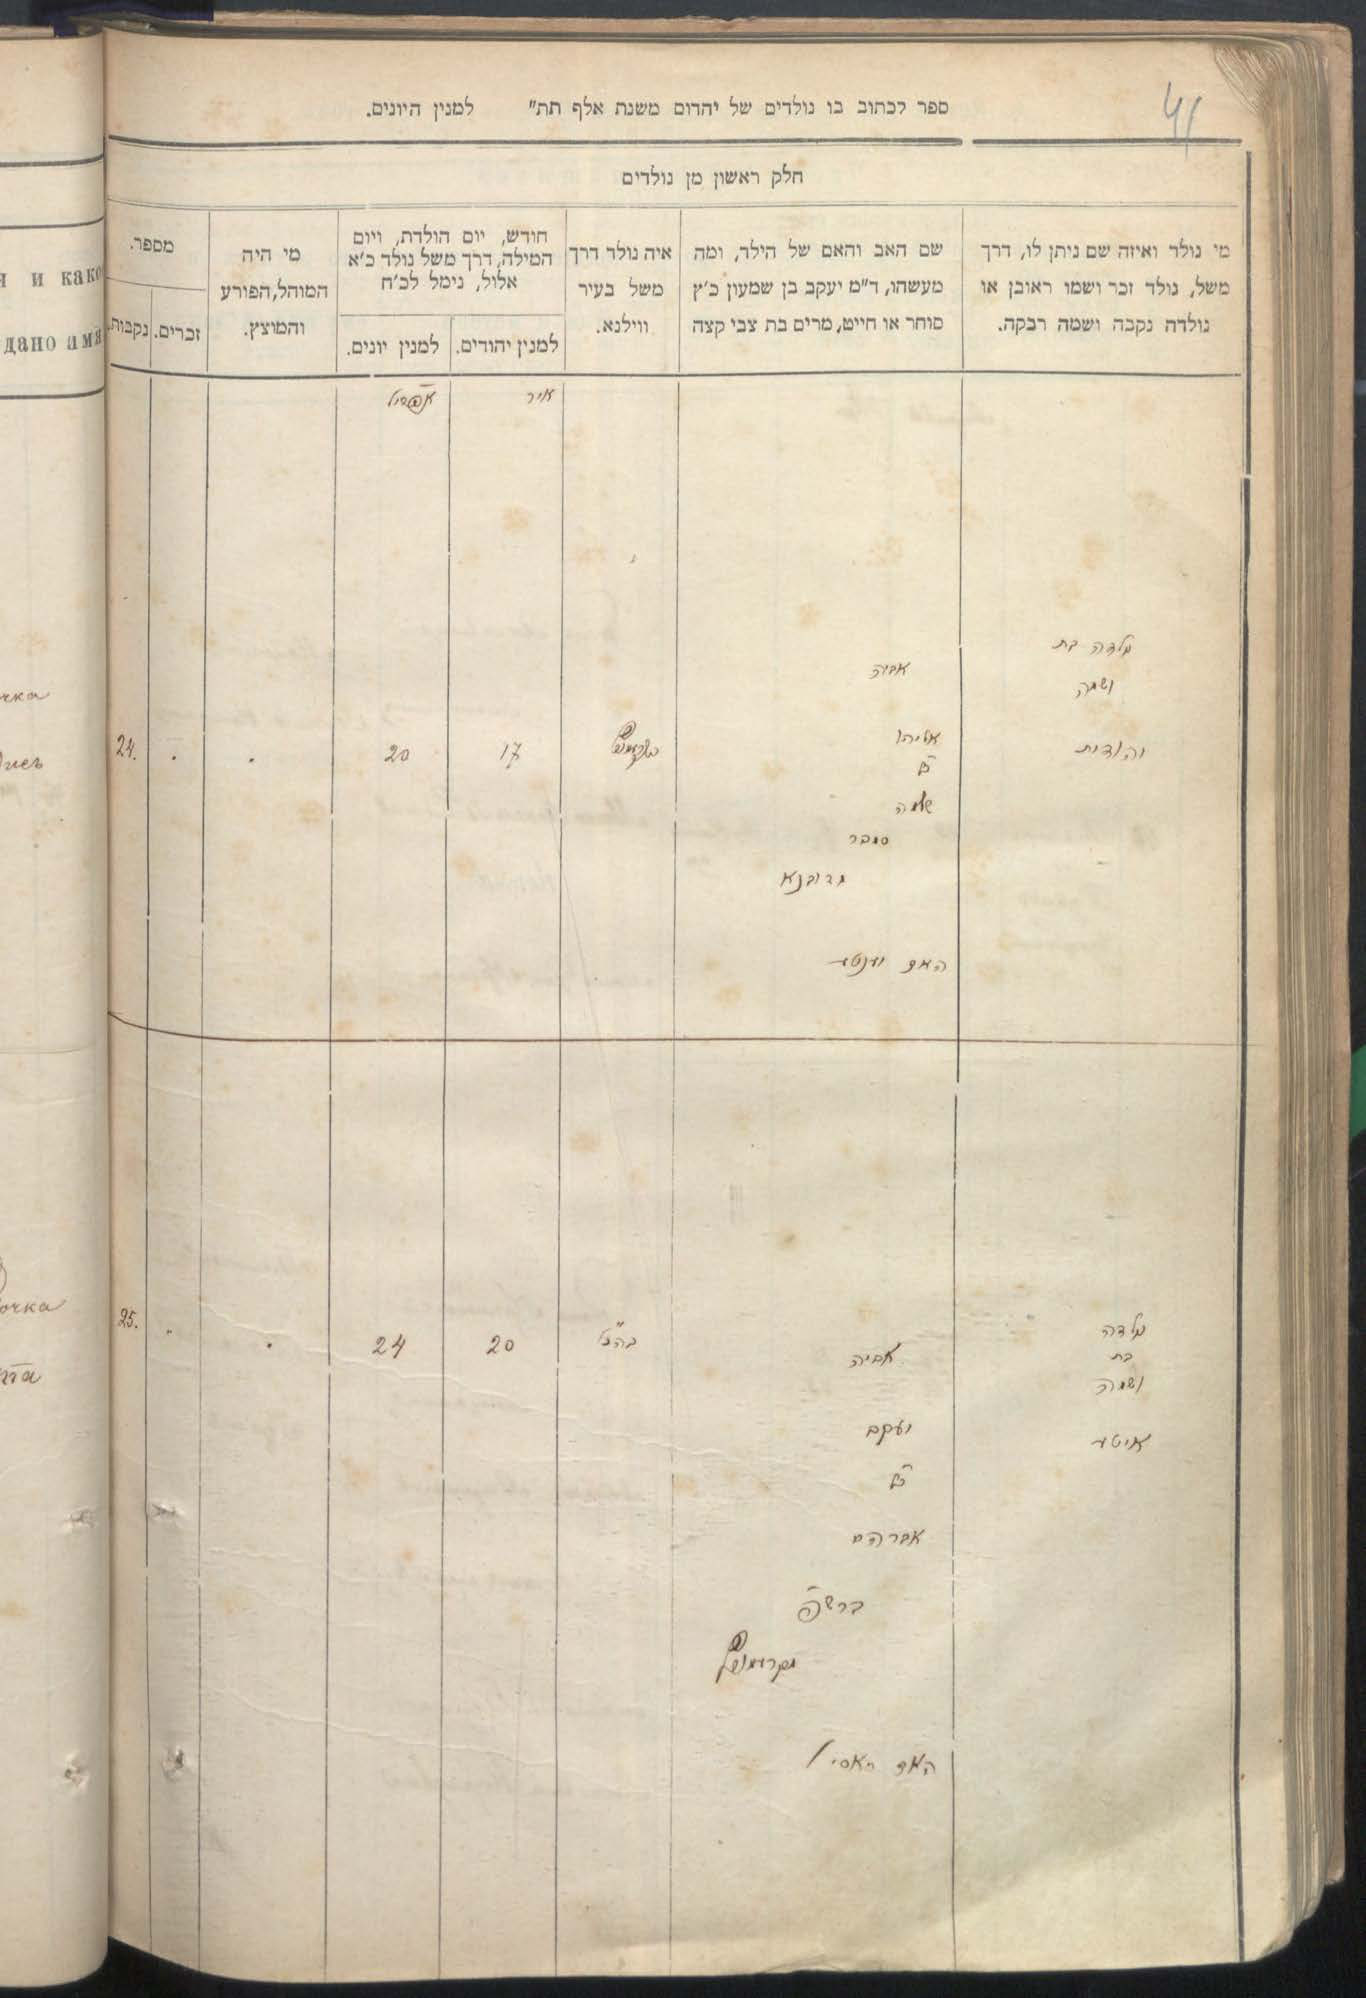 41
ספר לכתוב בו נולדים של יהדום משנת אלף תת" למנין היונים.
חלק ראשון מן נולדים
מי נולד ואיזה שם ניתן לו, דרך
משל, נולד זכר ושמו ראובן או
נולדה נקבה ושמה רבקה.
שם האב והאם של הילד, ומה
מעשהו, ד"מ יעקב בן שמעון כ"ץ
סוחר או חייט, מרים בת צבי קצה
איה נולד דרך
משל בעיר
ווילנא.
חודש, יום הולדת, ויום
המילה, דרך משל נולד כ'א
אלול, נימל לכ'ח
למנין יהודים.
למנין יונים.
מי היה
המוהל, הפורע
והמוצץ.
מספר.
זכרים.
נקבות.
и како
дано имя
איר
אפריל
נולדה בת
ושמה
יהודית
אביה
אליהו
בן
שלמה
מדובנא
האם
17
20
24.
очка
נולדה
בת
ושמה
איטע
אביה
יעקב
בן
אברהם
האם
20
24
25.
очка